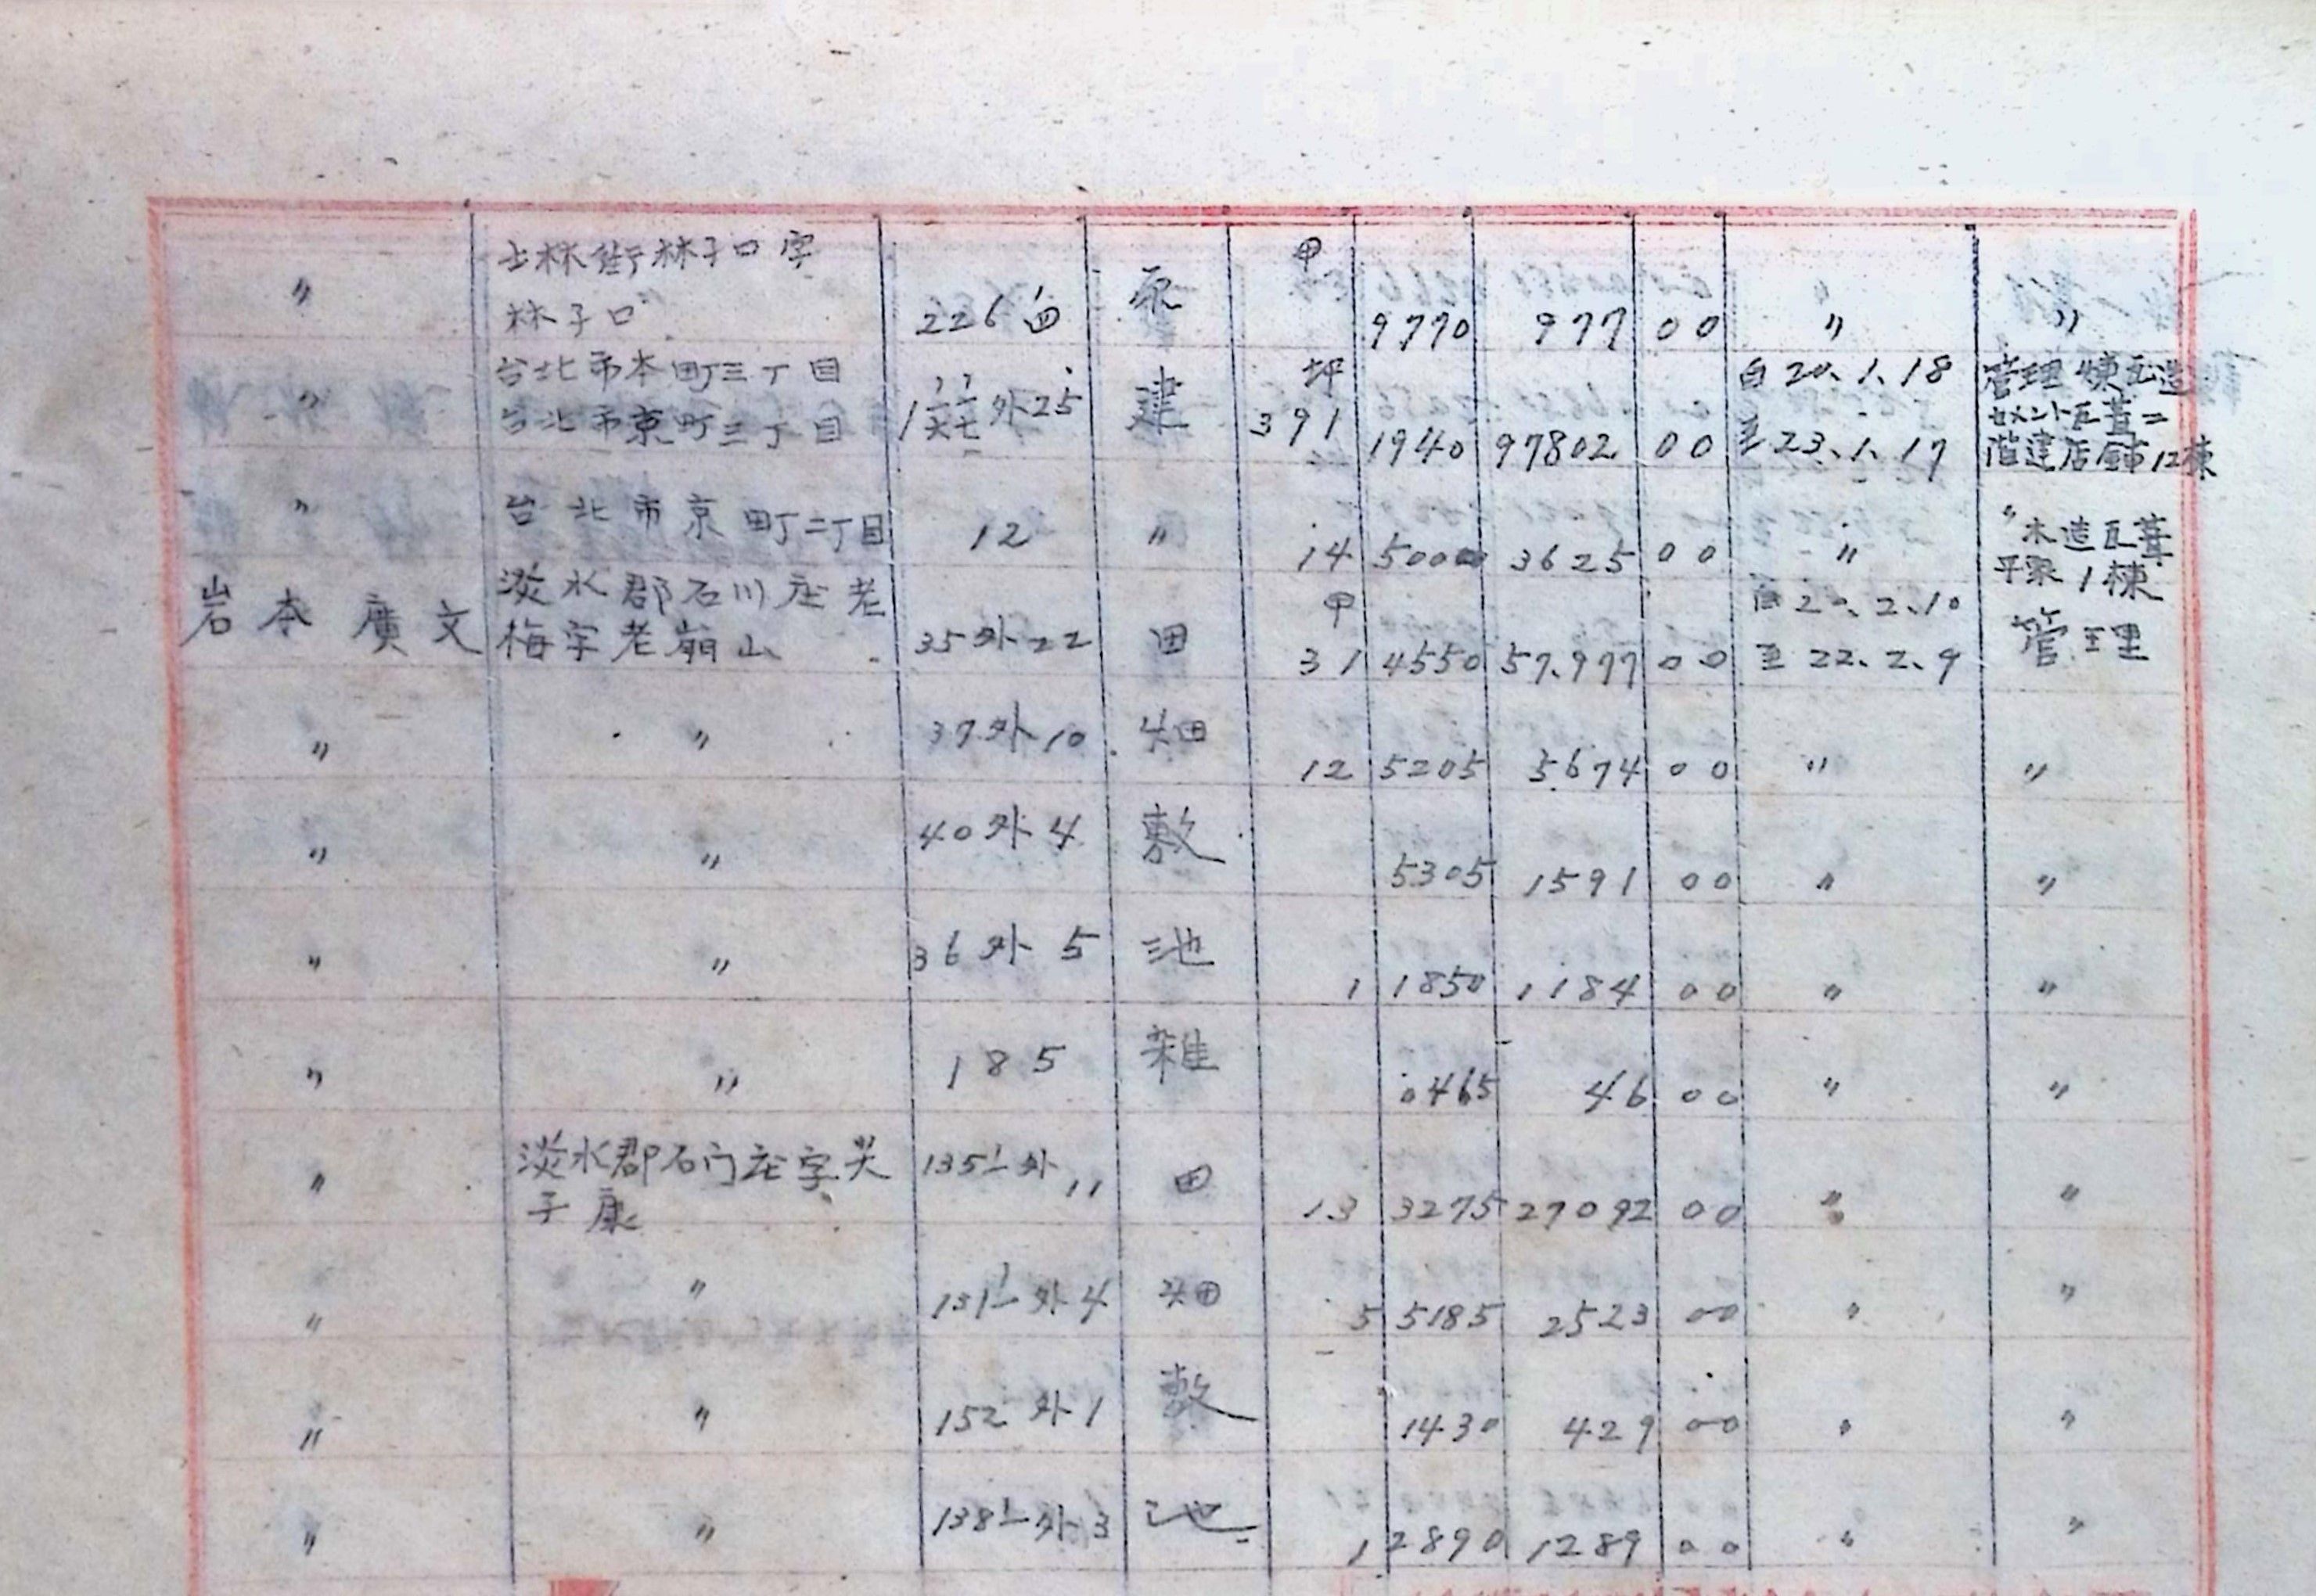 〃 士林街林子口字
林子口 226 原 甲 9770 977 00 〃 〃
〃 台北市本町三丁目 外25 建 坪 自20.1.18 管理
台北市京町三丁目 391 1940 97802 00 至23.1.17 階建店舗12棟
〃 台北市京町二丁目 12 〃 14 5000 3625 00 〃 〃木造瓦葺
平家1棟
岩本廣文 淡水郡石川庄老 甲 自20.2.10
梅字老崩山 35外22 田 31 4550 57.977 00 至22.2.9 管理
〃 〃 37外10 畑 12 5205 5674 00 〃 〃
〃 〃 40外4 敷 5305 1591 00 〃 〃
〃 〃 36外5 池 1 1850 1184 00 〃 〃
〃 〃 185 雑 0465 46 00 〃 〃
〃 淡水郡石门庄字尖 135 外11 田
子康 13 3275 27092 00 〃 〃
〃 〃 131 外4 畑 5 5185 2523 00 〃 〃
〃 〃 152外1 敷 1430 429 00 〃 〃
〃 〃 138 外3 池 1 2890 1289 00 〃 〃